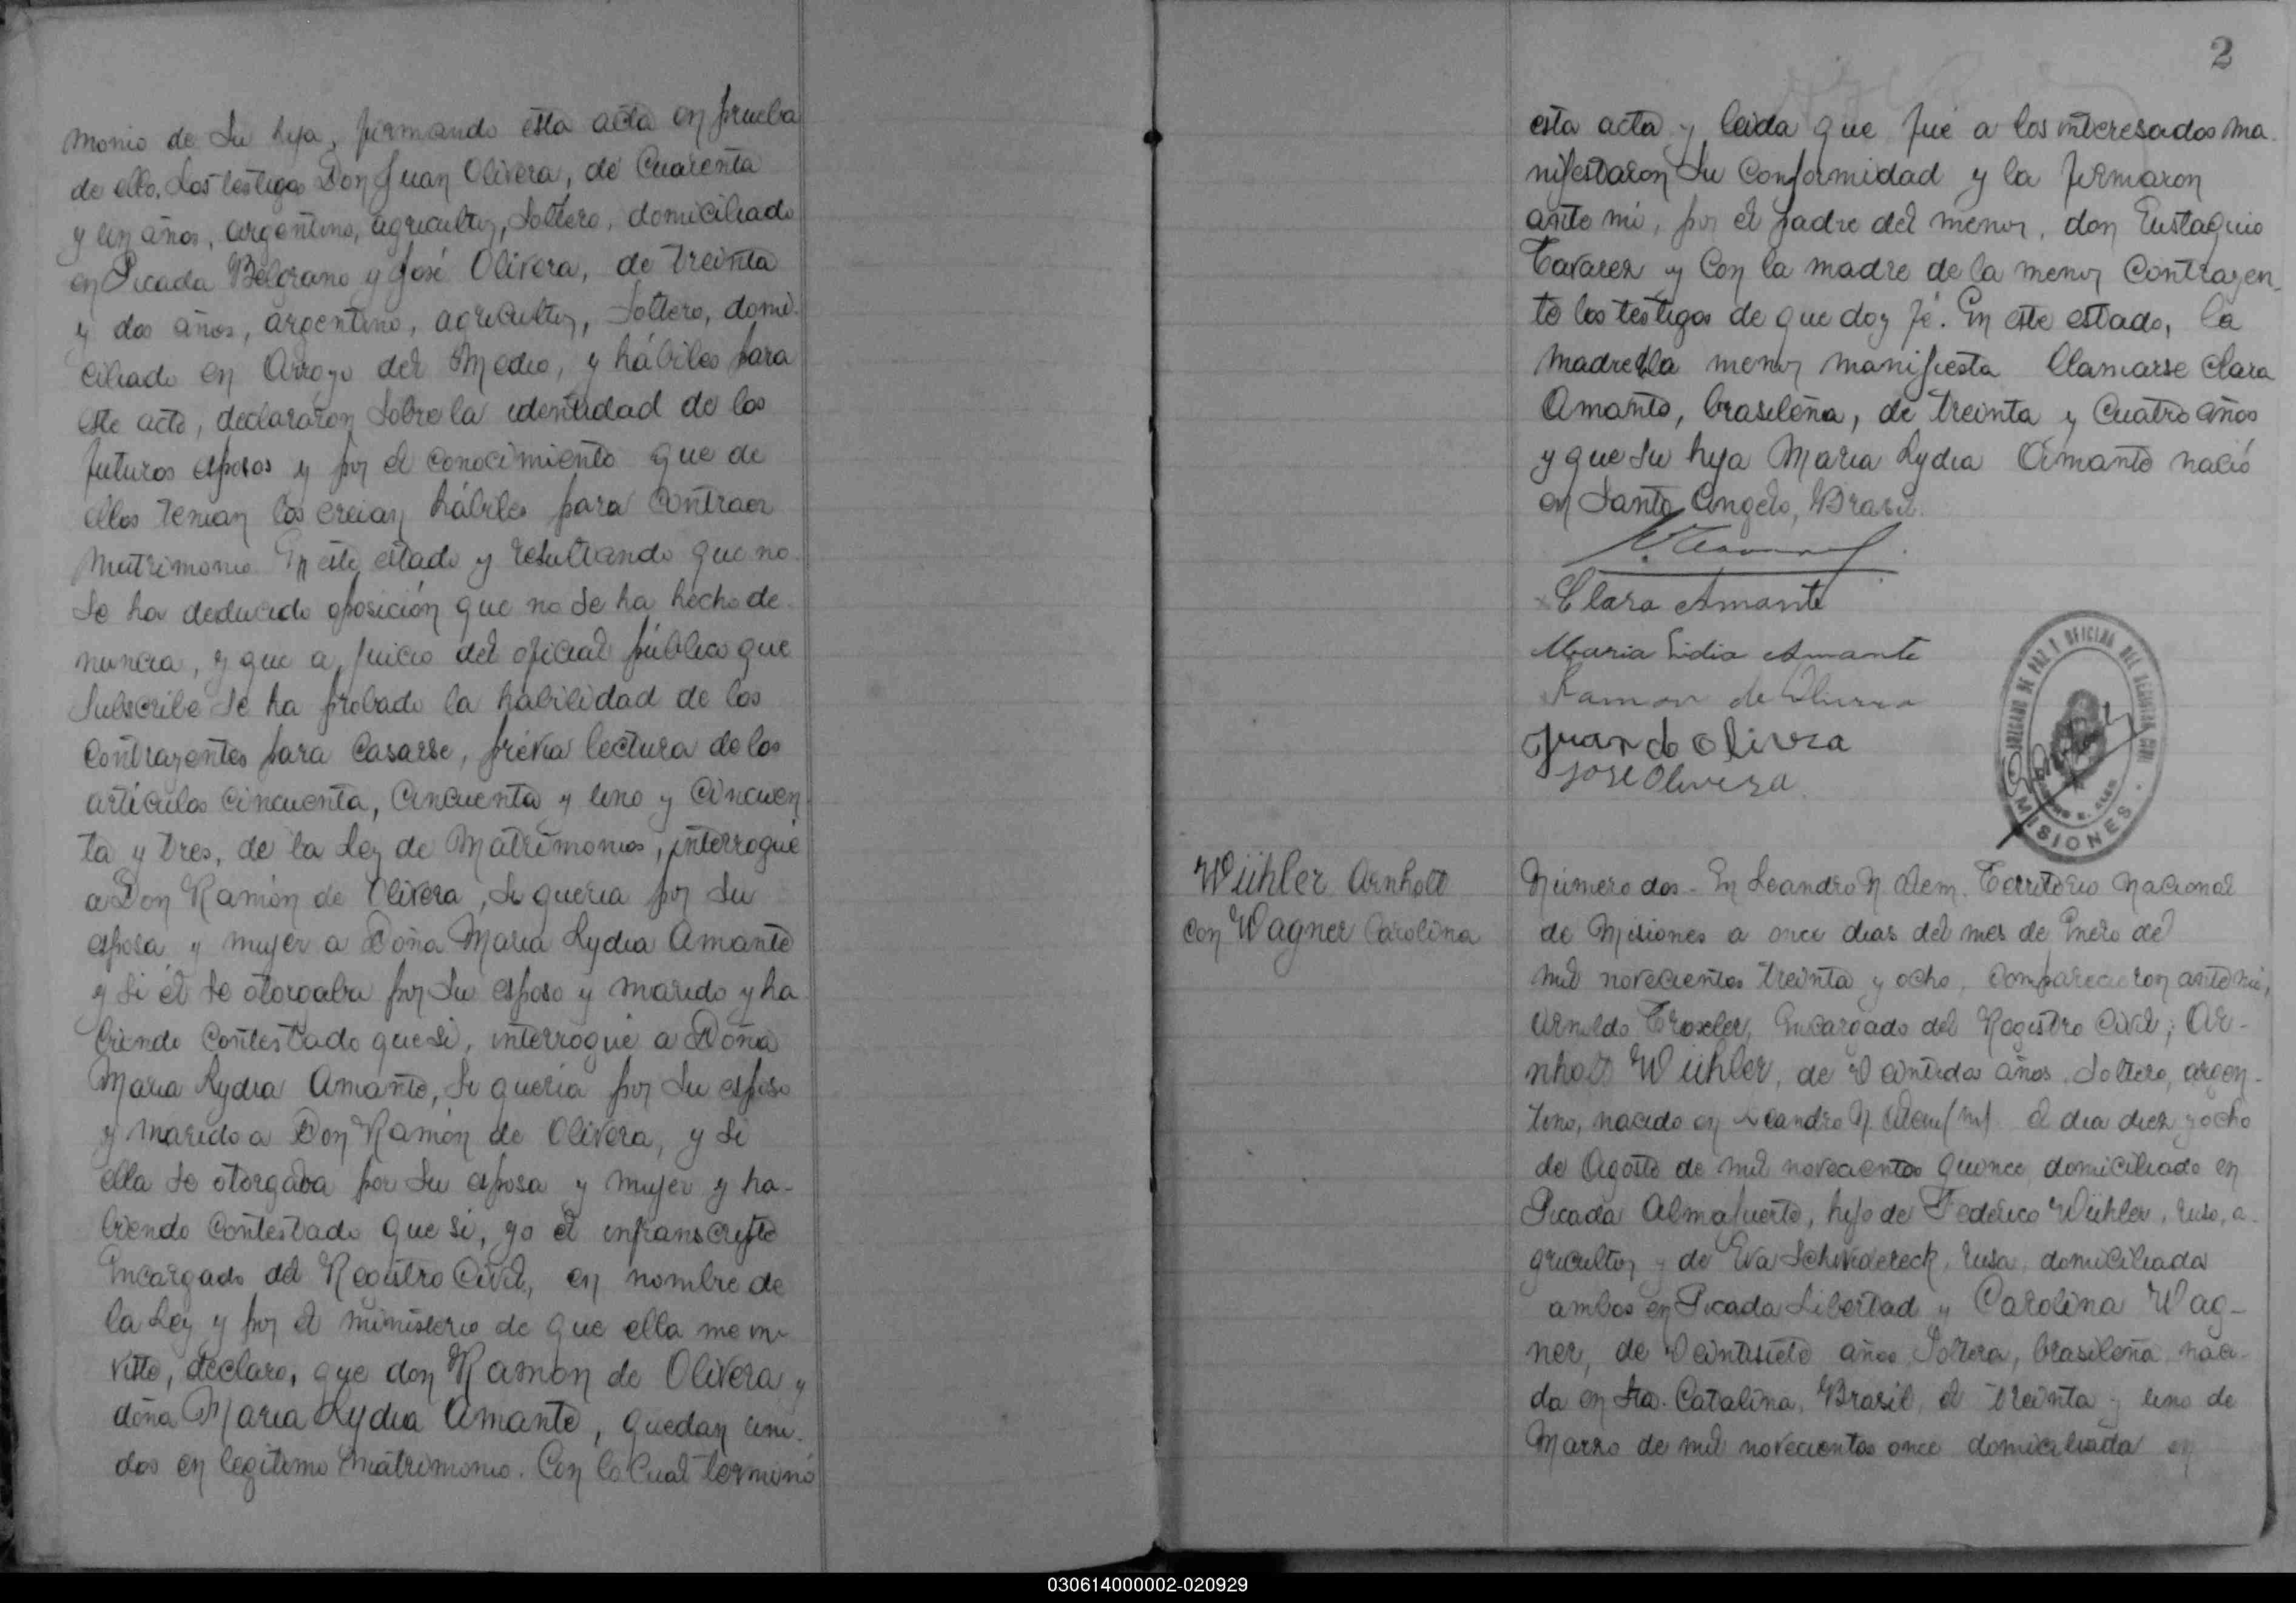 monio de Su hija, firmando esta acta en prueba
de ello. Los testigos Don Juan Olivera, de Cuarenta
y un años, argentino, agricultor, Soltero, domiciliado
en Picada Belgrano y José Olivera, de treinta
y dos años, argentino, agricultor, Soltero, domi-
ciliado en Arroyo del Medio, y hábiles para
este acto, declararon Sobre la identidad de los
futuros esposos y por el conocimiento que de
ellos tenian los creian hábiles para contraer
Matrimonio En este estado y resultando que no
Se ha deducido oposición que no Se ha hecho de-
nuncia, y que a juicio del oficial público que
Subscribe Se ha probado la habilidad de los
Contrayentes para Casarse, prévia lectura de los
artículos Cincuenta, Cincuenta y uno y Cincuen-
ta y tres, de la Ley de Matrimonios, interrogué
a Don Ramón de Olivera, Si queria por Su
esposa y mujer a Doña Maria Lydia Amante
y Si él Se otorgaba por Su esposo y marido y ha
biendo Contestado que Si, interrogué a Doña
Maria Lydia Amante, Si queria por Su esposo
y marido a Don Ramón de Olivera, y Si
ella Se otorgaba por Su esposa y mujer y ha-
biendo Contestado que Si, yo el infranscripto
Encargado del Registro Civil, en nombre de
la Ley y por el ministerio de que ella me in-
viste, declaro, que don Ramón de Olivera y
doña Maria Lydia Amante, quedan uni-
dos en legítimo matrimonio. Con lo Cual terminó
2
esta acta y leida que fué a los interesados ma-
nifestaron Su Conformidad y la firmaron
ante mi, por el padre del menor, don Eustaquio
Tavarez y Con la madre de la menor Contrayen-
te los testigos de que doy fé. En este estado, la
madre la menor manifiesta llamarse Clara
Amante, brasileña, de treinta y Cuatro años
y que Su hija Maria Lydia Amante nació
en Santo Angelo, Brasil.
Clara Amante
Maria Lidia Amante
Ramon de Olivera
Juan do Olivera
José Olivera
JUZGADO DE PAZ Y OFICINA DEL REGISTRO CIVIL
MISIONES
Wühler Arnholt
con Wagner Carolina
Número dos - En Leandro N. Alem. Territorio Nacional
de Misiones a once dias del mes de Enero de
mil novecientos treinta y ocho, Comparecieron ante mi,
Arnoldo Troxler, Encargado del Registro Civil; Ar-
nholt Wühler, de Veintidos años, Soltero, argen-
tino, nacido en Leandro N. Alem (M) el dia diez y ocho
de Agosto de mil novecientos quince, domiciliado en
Picada Almafuerte, hijo de Federico Wühler, ruso, a-
gricultor y de Eva rusa, domiciliada
ambos en Picada Libertad y Carolina Wag-
ner, de Veintisiete años, Soltera, brasileña naci-
da en Sta. Catalina, Brasil, el treinta y uno de
Marzo de mil novecientos once domiciliada en
030614000002-020929